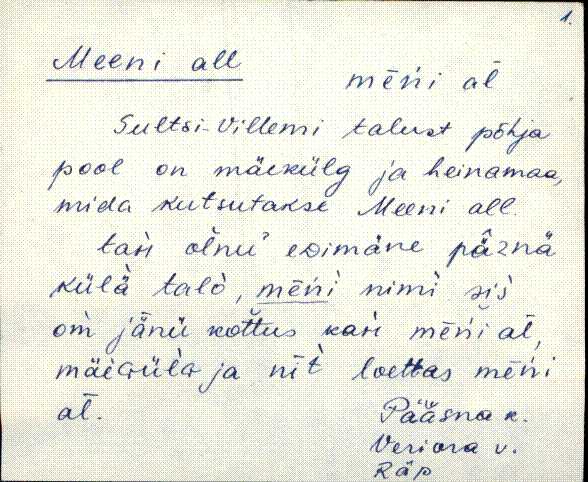 1.
Meeni all
mēni al
Sultsi-Villemi talust põhja
pool on mäekülg ja heinamaa,
mida kutsutakse Meeni all.
olnuˀ edimäne päznä
külä talo, mēni nimi
jänü kottus mēni al,
ja loettas mēni
al.
Pääsna k.
Veriora v.
Räp